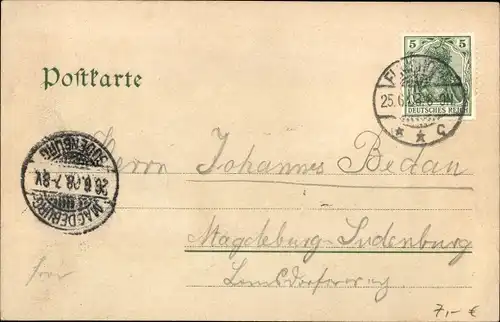 Postkarte
5 5
DEUTSCHES REICH
25.6.
* * C
SUDENBURG
26.6.08.7-8V.
MAGDEBURG
Herrn Johannes Bedau
Magdeburg-Sudenburg
7,- €